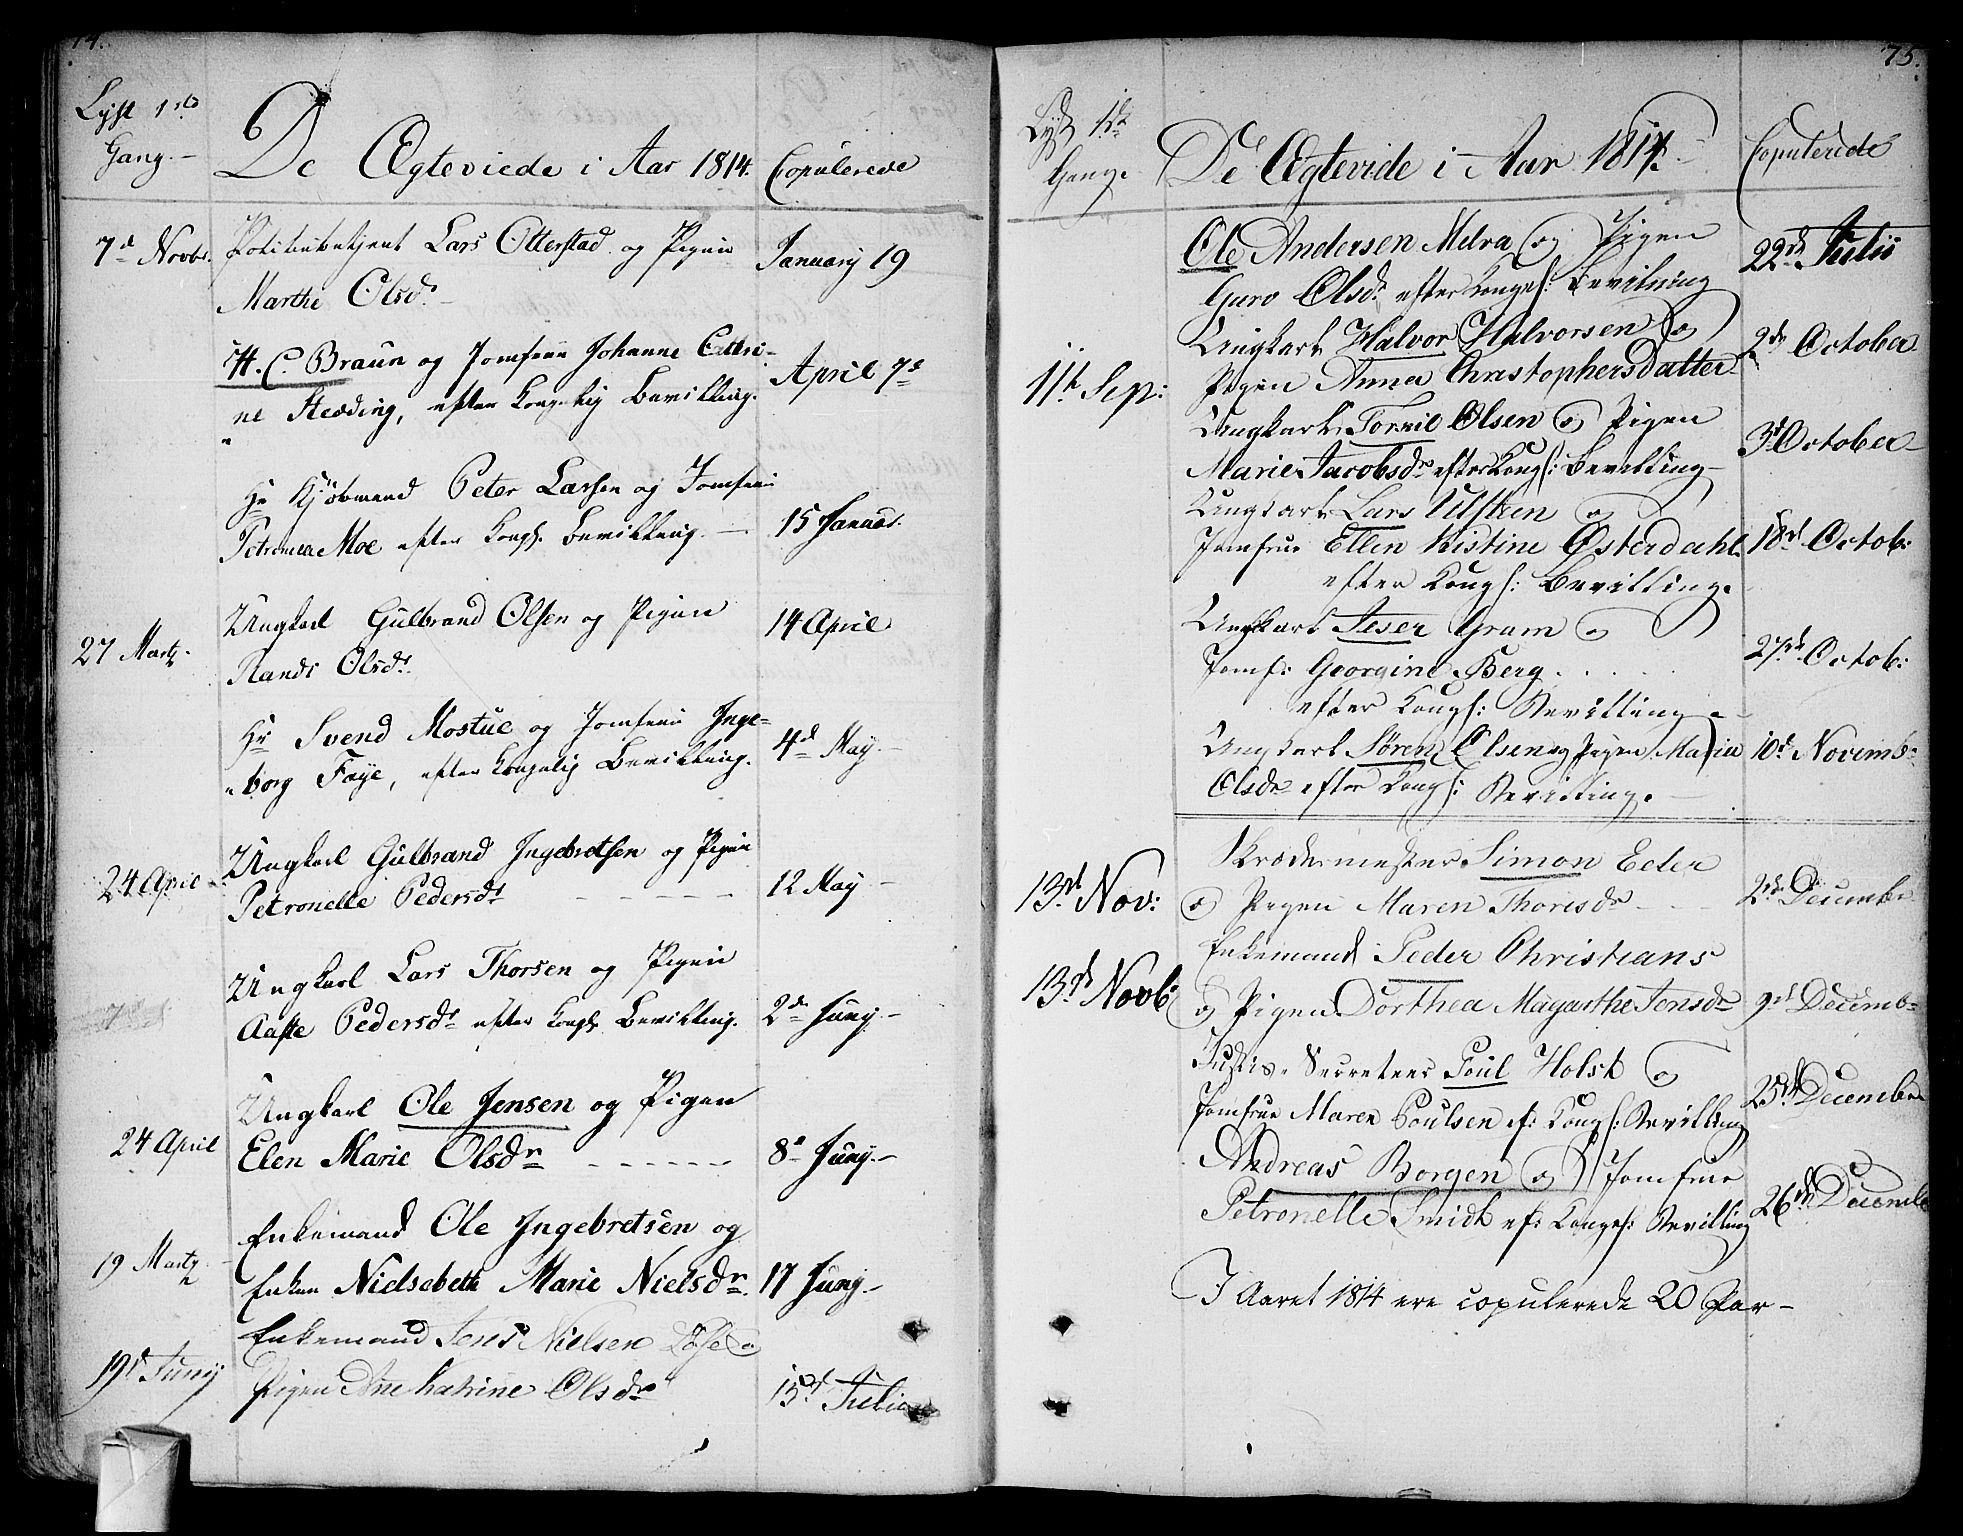 74.
Lyst 1ste
Gang.
De Ægteviede i Aar 1814.
Copulerede
7de Novbr.
Politibetjent Lars Otterstad og Pigen
Marthe Olsdr
January 19
H. C. Braun og Jomfrue Johanne Cathri-
ne Stesding, efter Kongelig Bevilling.
April 7de
Hr Kjöbmand Peter Larsen og Jomfrue
Petronea Moe efter Kongl. Bevilling.
15 Januar.
27 Martz
Ungkarl Gulbrand Olsen og Pigen
Randi Olsdr
14 April
Hr Svend Mostue og Jomfrue Inge-
borg Faye, efter Kongelig Bevilling.
4de May.
24 April
Ungkarl Gulbrand Ingebretsen og Pigen
Petronelle Pedersdr
12 May
Ungkarl Lars Thorsen og Pigen
Aaste Pedersdr efter Kongl. Bevilling.
2de Juny.
24 April
Ungkarl Ole Jensen og Pigen
Elen Marie Olsdr
8de Juny.
19 Martz
Enkemand Ole Ingebretsen og
Enken Nielsebeth Marie Nielsdr.
17 Juny
19de Juny
Enkemand Jens Nielsen og
Pigen Ane Katrine Olsdr
15de Julii
75.
Lyst 1ste
Gang.
De Ægteviede i Aar 1814.
Copulerede
Ole Andersen Melva og Pigen
Guro Olsdr. efter Kongel: Bevilning
22de Julii
11te Sep:
Ungkarl Halvor Halvorsen og
Pigen Anna Christophersdatter
2de October
Ungkarl Torkil Olsen og Pigen
Marie Jacobsdr efter Kongl: Bevilling
3de October
Ungkarl Lars Ulsteen og
Jomfrue Ellen Kistine Østerdahl
efter Kongl: Bevilling.
18de Octob:
Ungkarl Jeser Gram og
Jomf: Georgine Berg.
efter Kongl: Bevilling.
27de Octob:
Ungkarl Søren Olsen og Pigen Maria
Olsdr efter Kongl: Bevilling.
10de Novemb:
13de Nov:
Skrædermester Simon Eeler
og Pigen Maren Thorisdr
2de Decembr
13de Novb:
Enkemand Peder Christians
og Pigen Dorthea Magarthe Jensdr
9de Decemb
Justis-Secreteer Poul Holst og
Jomfrue Maren Poulsen ef: Kongl: Bevilling
25de Decembr
Andreas Borgen og Jomfrue
Petronelle Smidt ef: Kongel: Bevilling
26de Decembr
I Aaret 1814 ere copulerede 20 Par